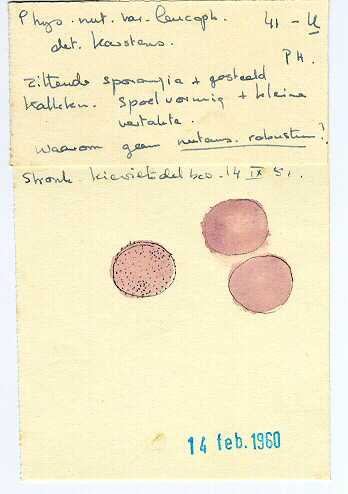 Phys. nut. var. leucoph. 41 - U
det. Karstens.
PH.
Zittende sporangia + gesteeld
Kalkkn. Spoelvormig + kleine
vertakte.
Waarom geen nutans. robustum?
Stronk. Kievietsdel bco. 14 IX 51.
14 feb. 1960